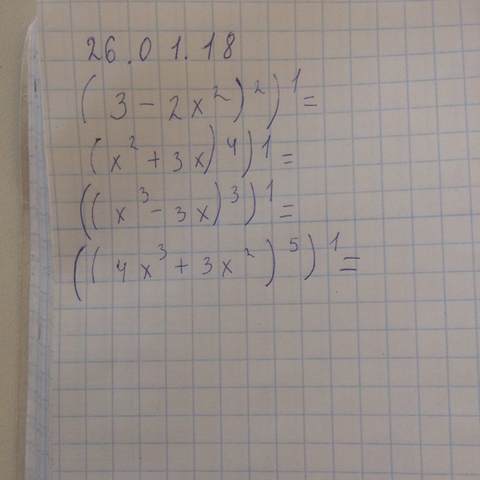 26.01.18
(3 - 2x²)²)¹=
(x² + 3x)⁴)¹=
((x³ - 3x)³)¹=
((4x³ + 3x²)⁵)¹=